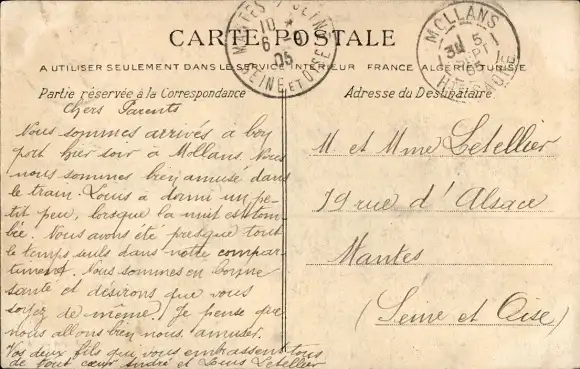 CARTE POSTALE
A UTILISER SEULEMENT DANS LE SERVICE INTÉRIEUR FRANCE ALGÉRIE TUNISIE
Partie réservée à la Correspondance
Chers Parents
Nous sommes arrivés à bon
port hier soir à Mollans. Nous
nous sommes bien amusé dans
le train. Louis a dormi un pe-
tit peu, lorsque la nuit est tom-
bée. Nous avons été presque tout
le temps seuls dans notre compar-
timent. Nous sommes en bonne
santé et désirons que vous
soyez de meme. Je pense que
nous allons bien nous amuser.
Vos deux fils que vous embrassent tous
de tout cœur André et Louis Letellier
Adresse du Destinataire
M. et Mme Letellier
79 rue d'Alsace
Mantes
(Seine et Oise)
MANTES SEINE
10
6
05
SEINE ET OISE
MOLLANS
5
SEPT
05
HTE SAONE